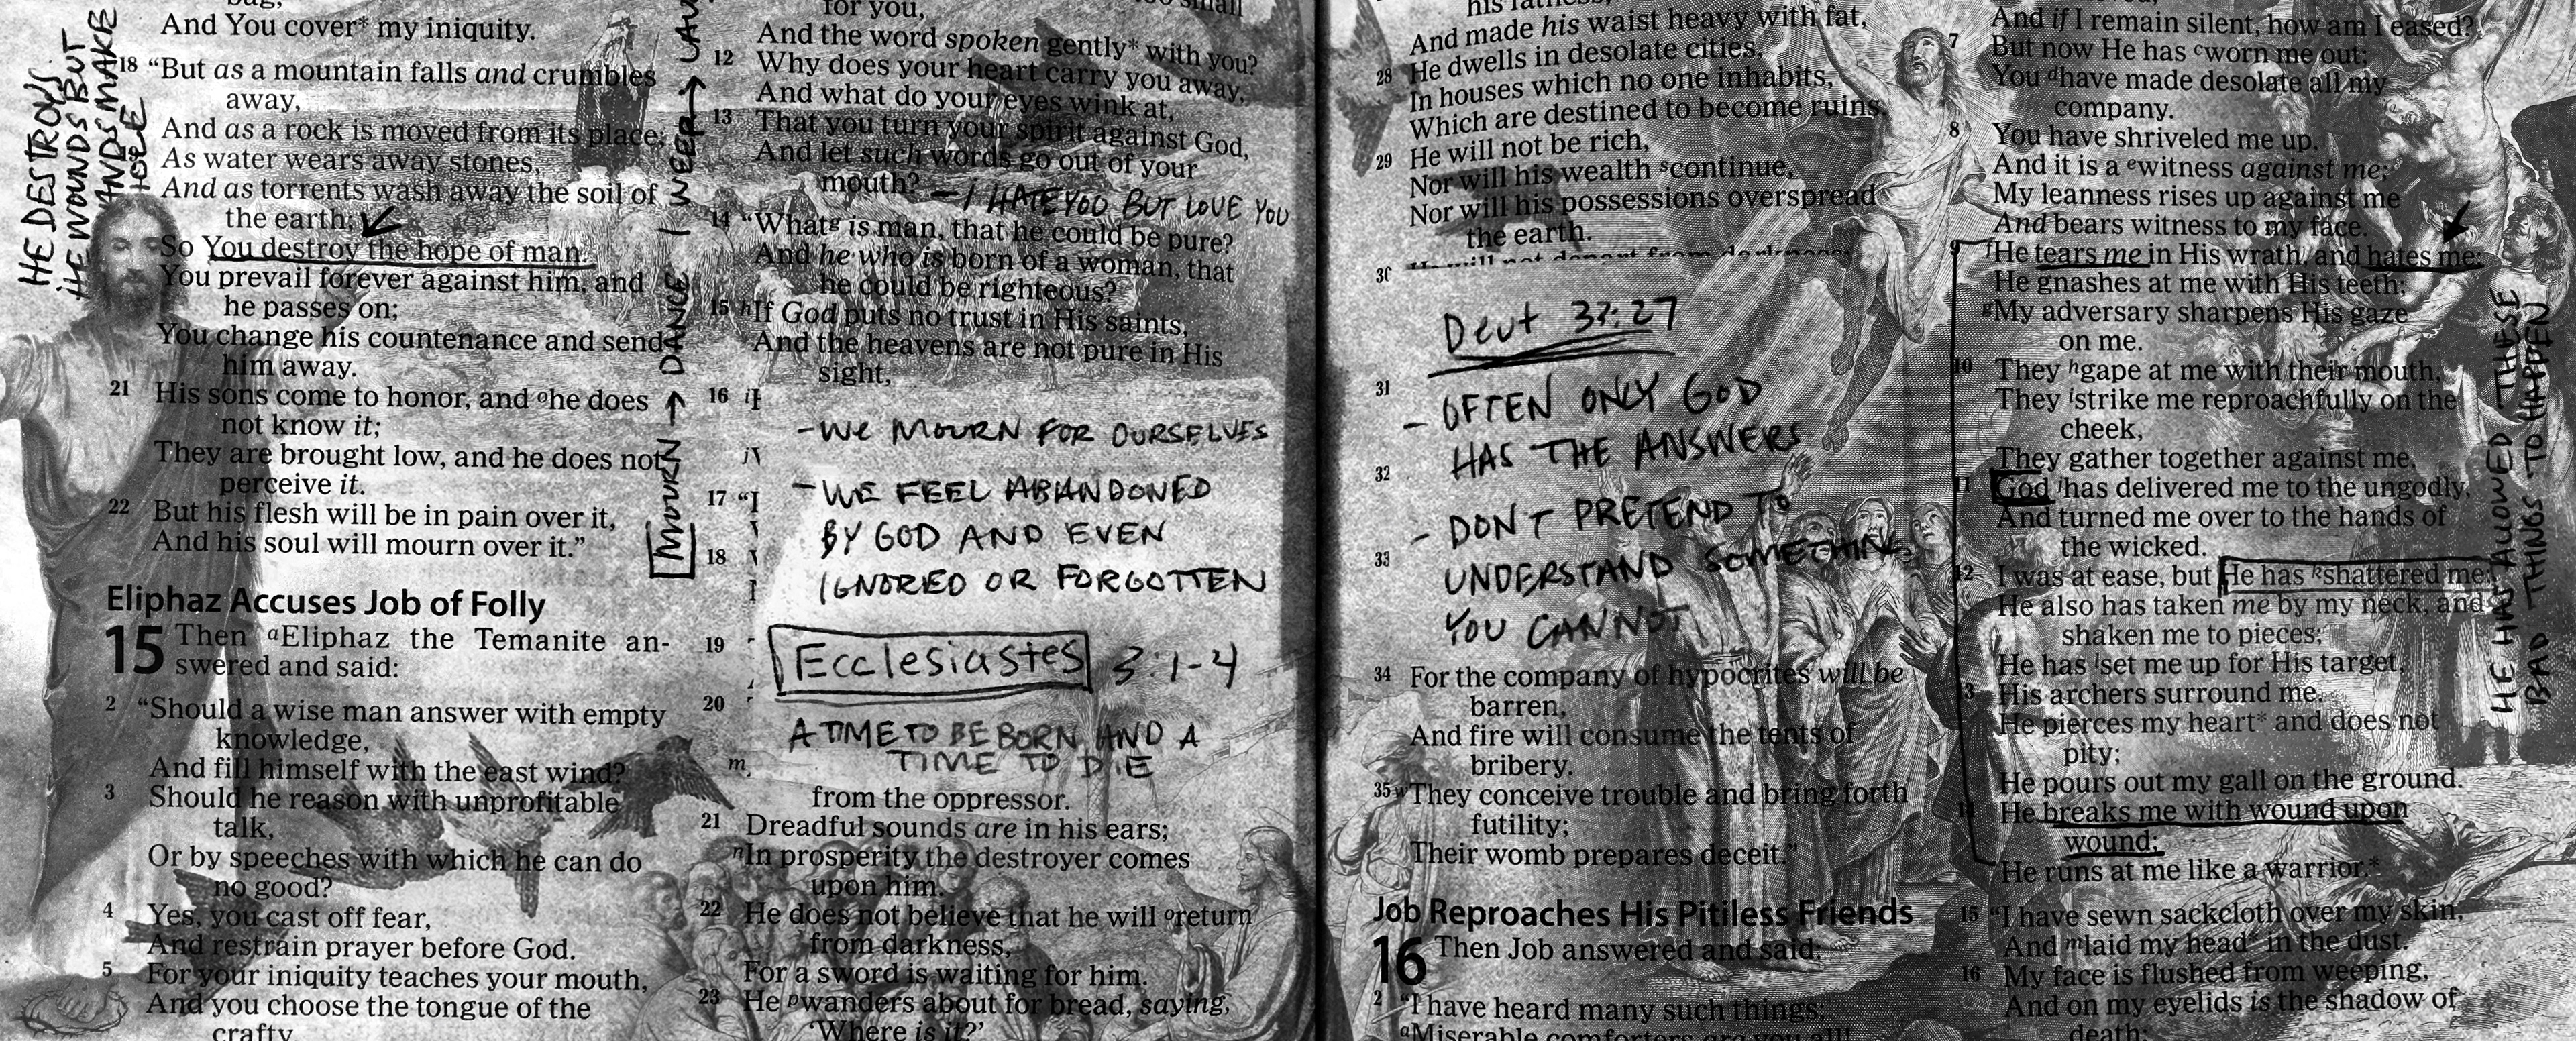 HE DESTROYS.
HE WOUNDS BUT
HANDS MAKE
WHOLE
And You cover* my iniquity.
18 “But as a mountain falls and crumbles
away,
And as a rock is moved from its place;
As water wears away stones,
And as torrents wash away the soil of
the earth;
So You destroy the hope of man.
You prevail forever against him, and
he passes on;
You change his countenance and send
him away.
21 His sons come to honor, and ohe does
not know it;
They are brought low, and he does not
perceive it.
22 But his flesh will be in pain over it,
And his soul will mourn over it.”
Eliphaz Accuses Job of Folly
15 Then aEliphaz the Temanite an-
swered and said:
2 “Should a wise man answer with empty
knowledge,
And fill himself with the east wind?
3 Should he reason with unprofitable
talk,
Or by speeches with which he can do
no good?
4 Yes, you cast off fear,
And restrain prayer before God.
5 For your iniquity teaches your mouth,
And you choose the tongue of the
crafty.
MOURN → DANCE
I WEEP →
for you,
And the word spoken gently* with you?
12 Why does your heart carry you away,
And what do your eyes wink at,
13 That you turn your spirit against God,
And let such words go out of your
mouth?
- I HATE YOU BUT LOVE YOU
14 “Whatg is man, that he could be pure?
And he who is born of a woman, that
he could be righteous?
15 hIf God puts no trust in His saints,
And the heavens are not pure in His
sight,
16
- WE MOURN FOR OURSELVES
17
- WE FEEL ABANDONED
BY GOD AND EVEN
18
IGNORED OR FORGOTTEN
19
Ecclesiastes 3:1-4
20
A TIME TO BE BORN AND A
TIME TO DIE
m
from the oppressor.
21 Dreadful sounds are in his ears;
nIn prosperity the destroyer comes
upon him.
22 He does not believe that he will oreturn
from darkness,
For a sword is waiting for him.
23 He pwanders about for bread, saying,
‘Where is it?’
And made his waist heavy with fat,
28 He dwells in desolate cities,
In houses which no one inhabits,
Which are destined to become ruins.
29 He will not be rich,
Nor will his wealth scontinue,
Nor will his possessions overspread
the earth.
30 He will not depart from darkness
Deut 32:27
31
- OFTEN ONLY GOD
HAS THE ANSWERS
32
- DON'T PRETEND TO
33
UNDERSTAND SOMETHING
YOU CANNOT
34 For the company of hypocrites will be
barren,
And fire will consume the tents of
bribery.
35 wThey conceive trouble and bring forth
futility;
Their womb prepares deceit.”
Job Reproaches His Pitiless Friends
16 Then Job answered and said:
2 “I have heard many such things;
aMiserable comforters are you all!
And if I remain silent, how am I eased?
7 But now He has cworn me out;
You dhave made desolate all my
company.
8 You have shriveled me up,
And it is a ewitness against me;
My leanness rises up against me
And bears witness to my face.
9 fHe tears me in His wrath, and hates me;
He gnashes at me with His teeth;
gMy adversary sharpens His gaze
on me.
10 They hgape at me with their mouth,
They istrike me reproachfully on the
cheek,
They gather together against me.
11 God jhas delivered me to the ungodly,
And turned me over to the hands of
the wicked.
12 I was at ease, but He has kshattered me;
He also has taken me by my neck, and
shaken me to pieces;
He has lset me up for His target,
13 His archers surround me.
He pierces my heart* and does not
pity;
He pours out my gall on the ground.
14 He breaks me with wound upon
wound;
He runs at me like a warrior.*
15 “I have sewn sackcloth over my skin,
And mlaid my head* in the dust.
16 My face is flushed from weeping,
And on my eyelids is the shadow of
death;
HE HAS ALLOWED THESE
BAD THINGS TO HAPPEN